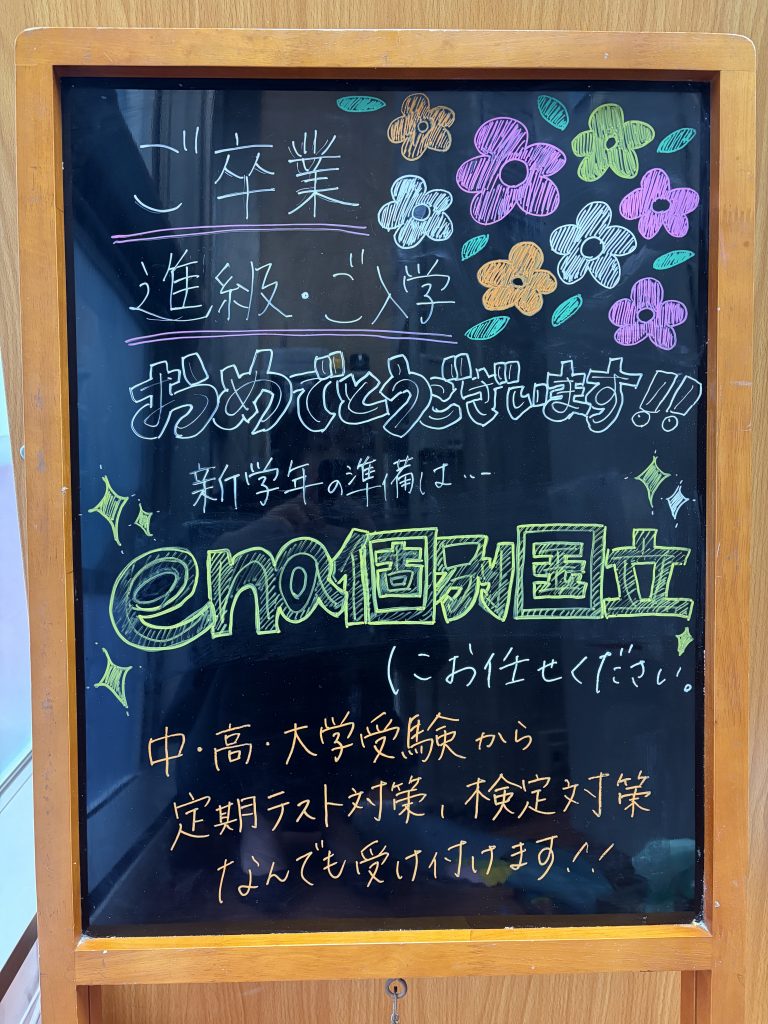 ご卒業
進級・ご入学
おめでとうございます!!
新学年の準備は…
ena個別国立
にお任せください。
中・高・大学受験から
定期テスト対策、検定対策
なんでも受け付けます!!